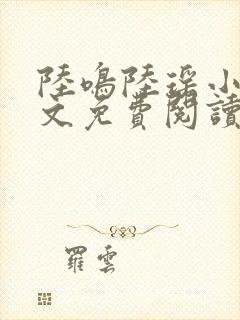 陸鳴陸瑶小
文免費閱讀
羅雲